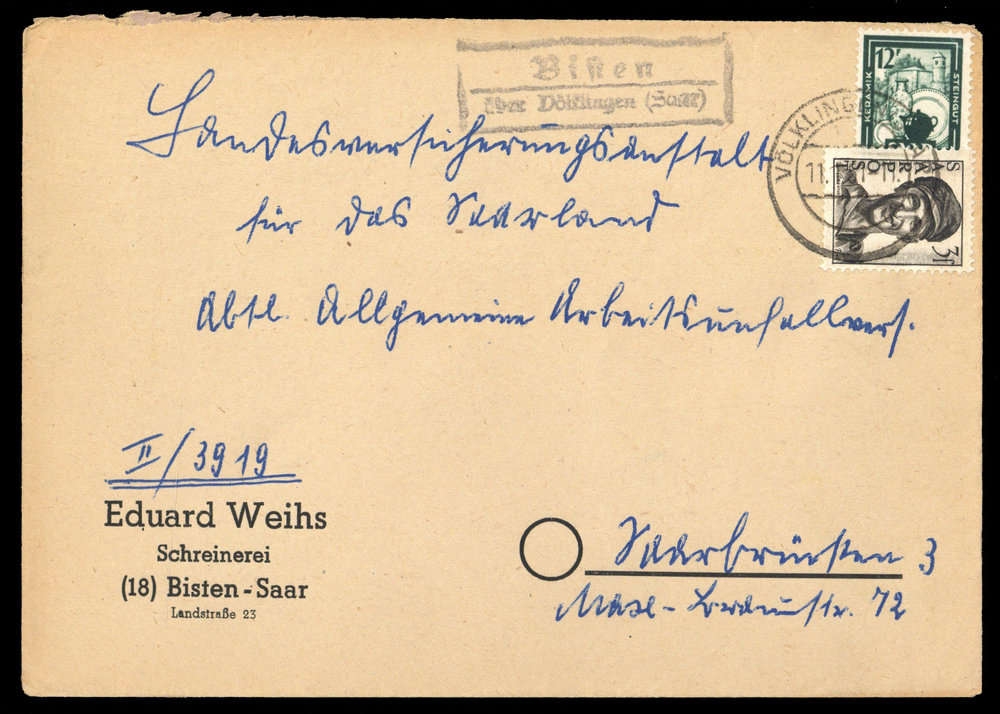 Bisten
über Völklingen (Saar)
12F
KERAMIK
STEINGUT
VÖLKLINGEN
SAARPOST
3F
Landesversicherungsanstalt
für das Saarland
Abtl. Allgemeine Arbeitsunfallvers.
II/3919
Eduard Weihs
Schreinerei
(18) Bisten-Saar
Landstraße 23
Saarbrücken 3
72